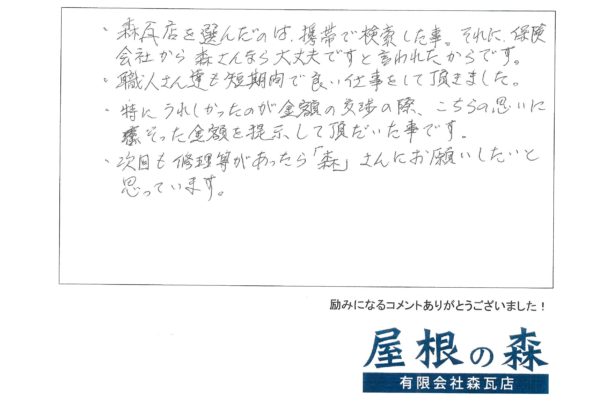 ・森瓦店を選んだのは、携帯で検索した事。それに、保険
会社から森さんなら大丈夫ですと言われたからです。
・職人さん達も短期間で良い仕事をして頂きました。
・特にうれしかったのが金額の交渉の際、こちらの思いに
そった金額を提示して頂だいた事です。
・次回も修理等があったら「森」さんにお願いしたいと
思っています。
励みになるコメントありがとうございました！
屋根の森
有限会社森瓦店